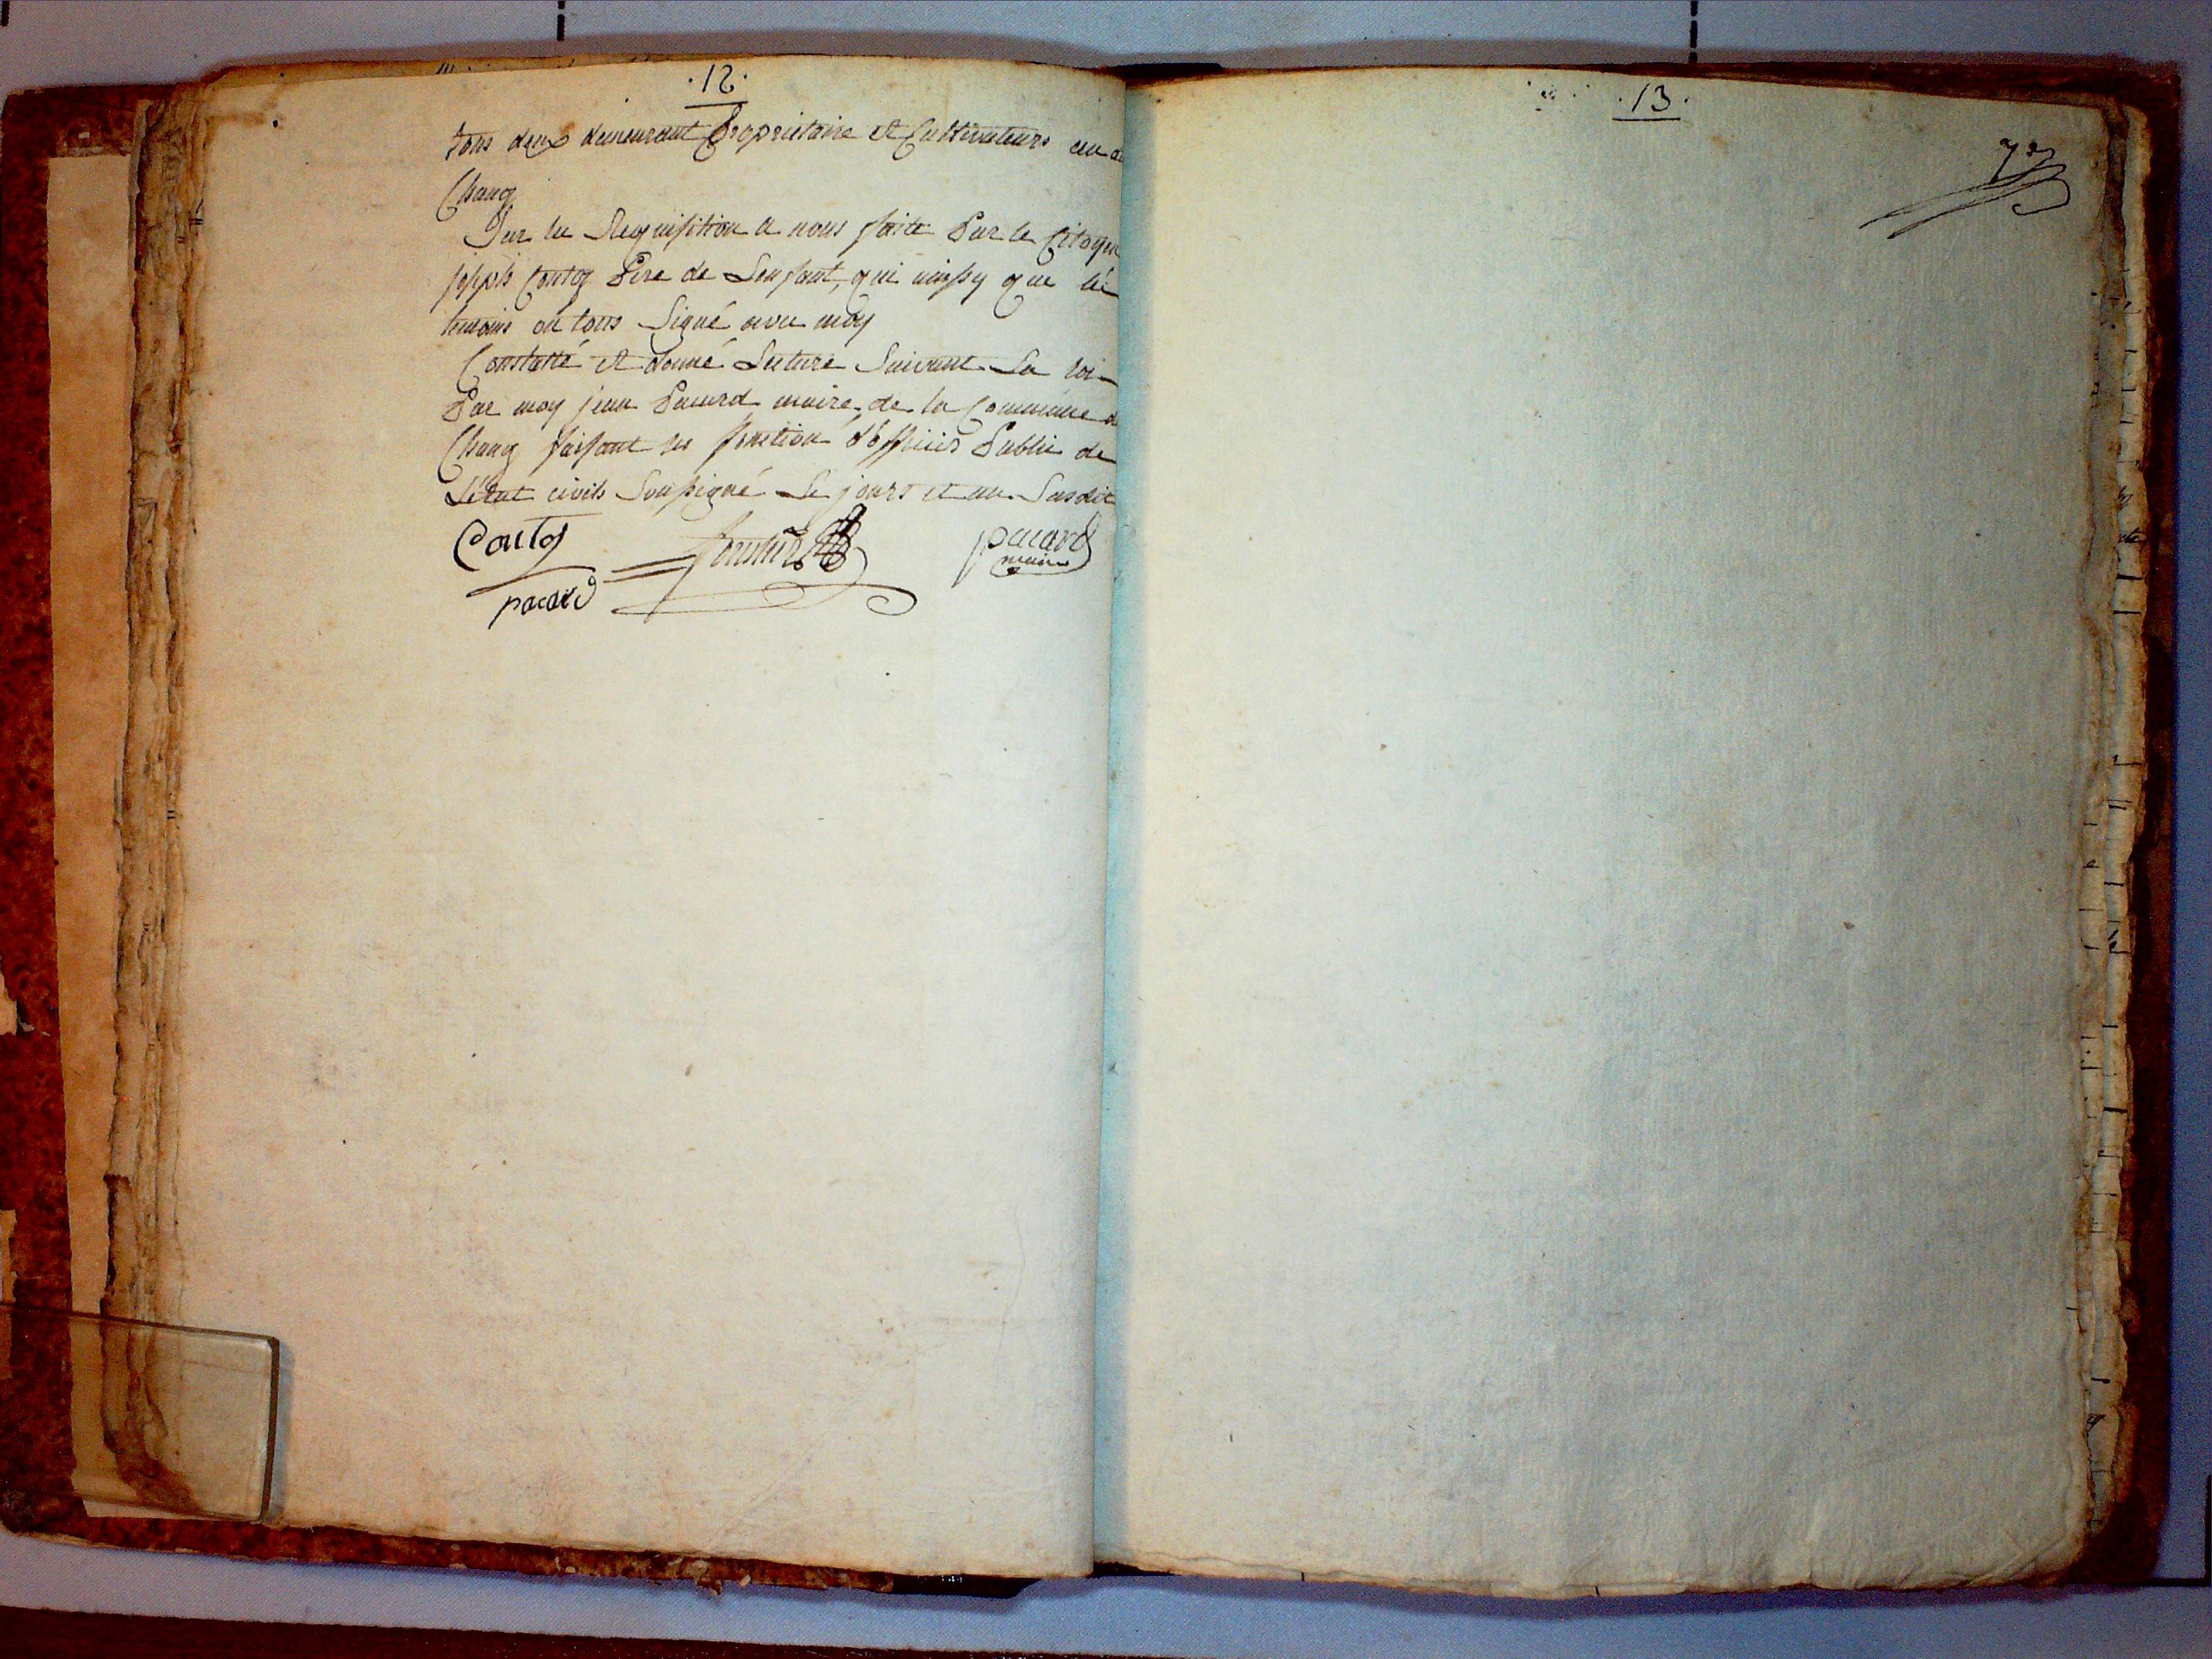 .12.
tous deux demeurant Propriétaire et Cultivateurs
Chany
Sur la Requisition a nous faite Par le Citoyen
joseph Contoz Pere de Lenfant, qui ainssy que lé
temoins on tous Signé avec moy
Constatté et donné Lecture Suivant La loi
Par moy jean Pacard maire de la Commune
Chany faisant les fonction d'officier Public de
Letat civils Soussigné Le jours et an Susdit
pacard
maire
pacard
.13.